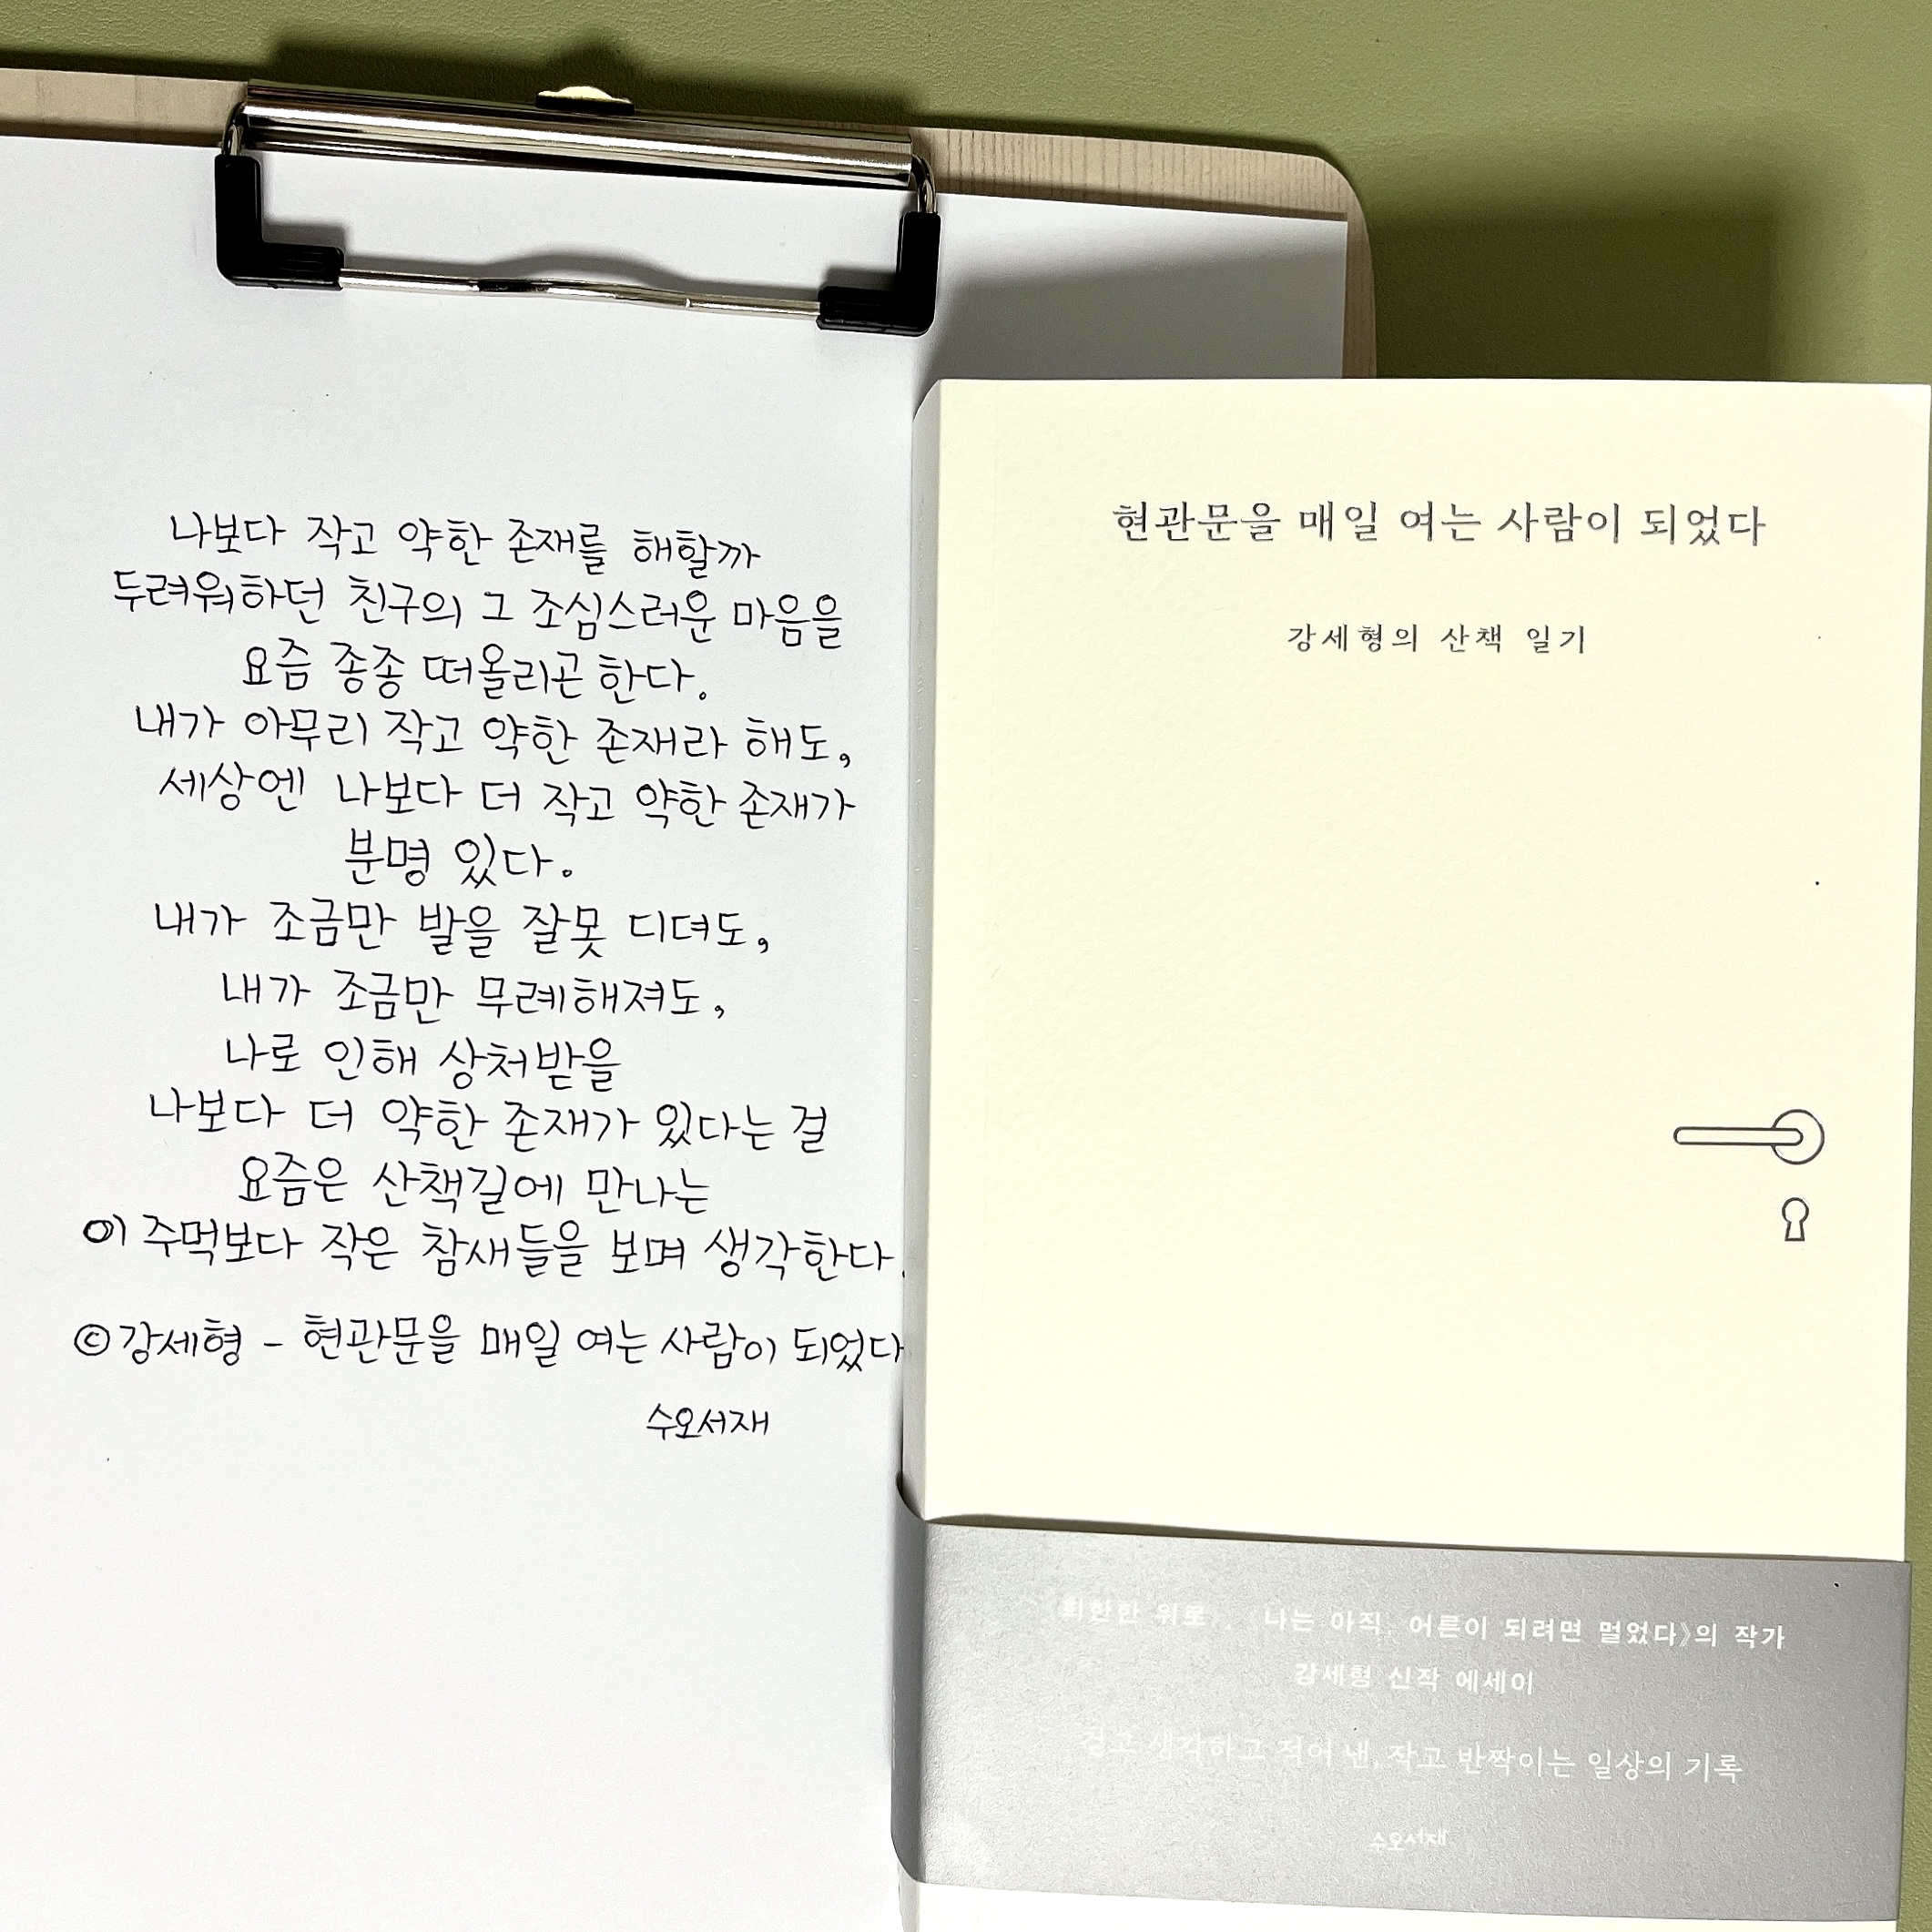 나보다 작고 약한 존재를 해할까
두려워하던 친구의 그 조심스러운 마음을
요즘 종종 떠올리곤 한다.
내가 아무리 작고 약한 존재라 해도,
세상엔 나보다 더 작고 약한 존재가
분명 있다.
내가 조금만 발을 잘못 디뎌도,
내가 조금만 무례해져도,
나로 인해 상처받을
나보다 더 약한 존재가 있다는 걸
요즘은 산책길에 만나는
이 주먹보다 작은 참새들을 보며 생각한다.
©강세형 - 현관문을 매일 여는 사람이 되었다
수오서재
현관문을 매일 여는 사람이 되었다
강세형의 산책 일기
《희한한 위로》, 《나는 아직, 어른이 되려면 멀었다》의 작가
강세형 신작 에세이
걷고 생각하고 적어 낸, 작고 반짝이는 일상의 기록
수오서재